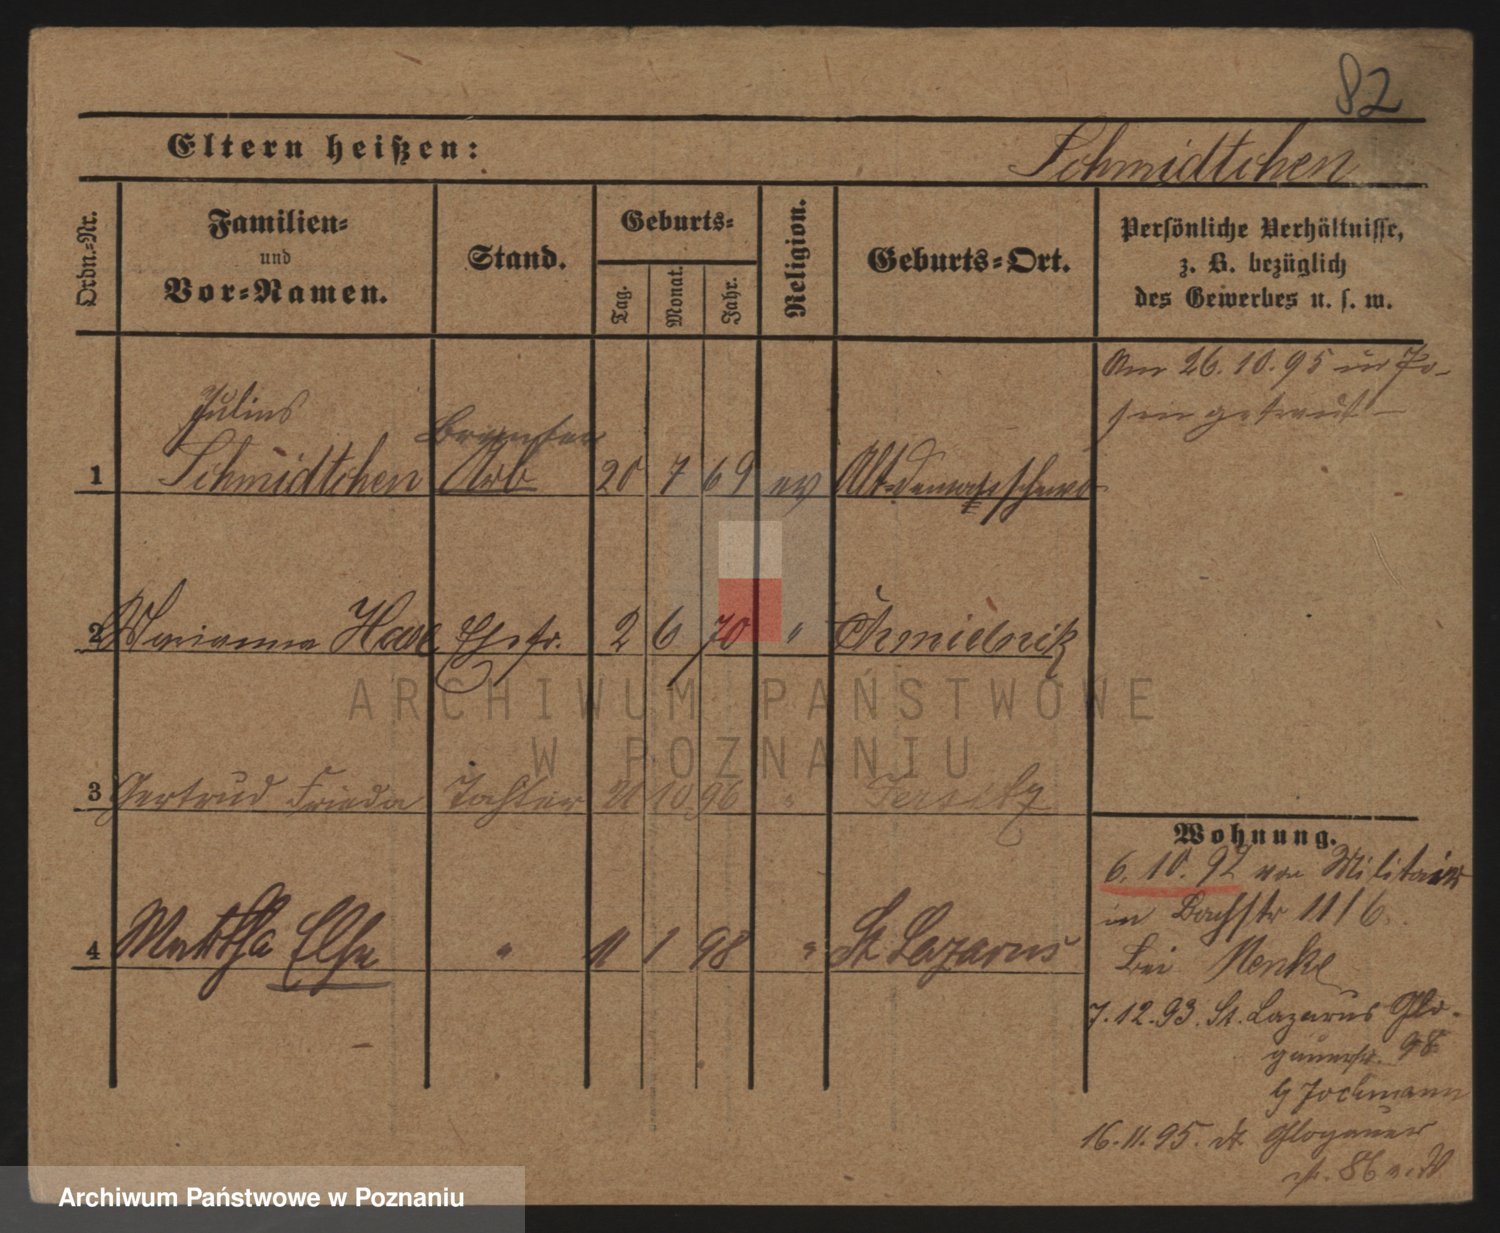 82
Eltern heißen:
Schmidtchen
Ordn.=Nr.
Familien=
und
Vor=Namen.
Stand.
Geburts=
Tag.
Monat.
Jahr.
Religion.
Geburts=Ort.
Persönliche Verhältnisse,
z. B. bezüglich
des Gewerbes u. s. w.
Am 26.10.95 in Po-
sen getraut
Julius
1 Schmidtchen Arb 20 7 69 ev
2 Marianna Ehefr. 2 6 70 " Chmielnik
ARCHIWUM PAŃSTWOWE
W POZNANIU
3 Gertrud Frieda Tochter 10 96 " Jersitz
4 Martha Else " 11 1 98 " St Lazarus
Wohnung.
6.10.92 von Militair
in Bachstr 11 I 6.
bei Menke
7.12.93. St. Lazarus Glo-
gauerstr. 98
b Jockmann
16.11.95. dt. Glogauer
str. 86
Archiwum Państwowe w Poznaniu